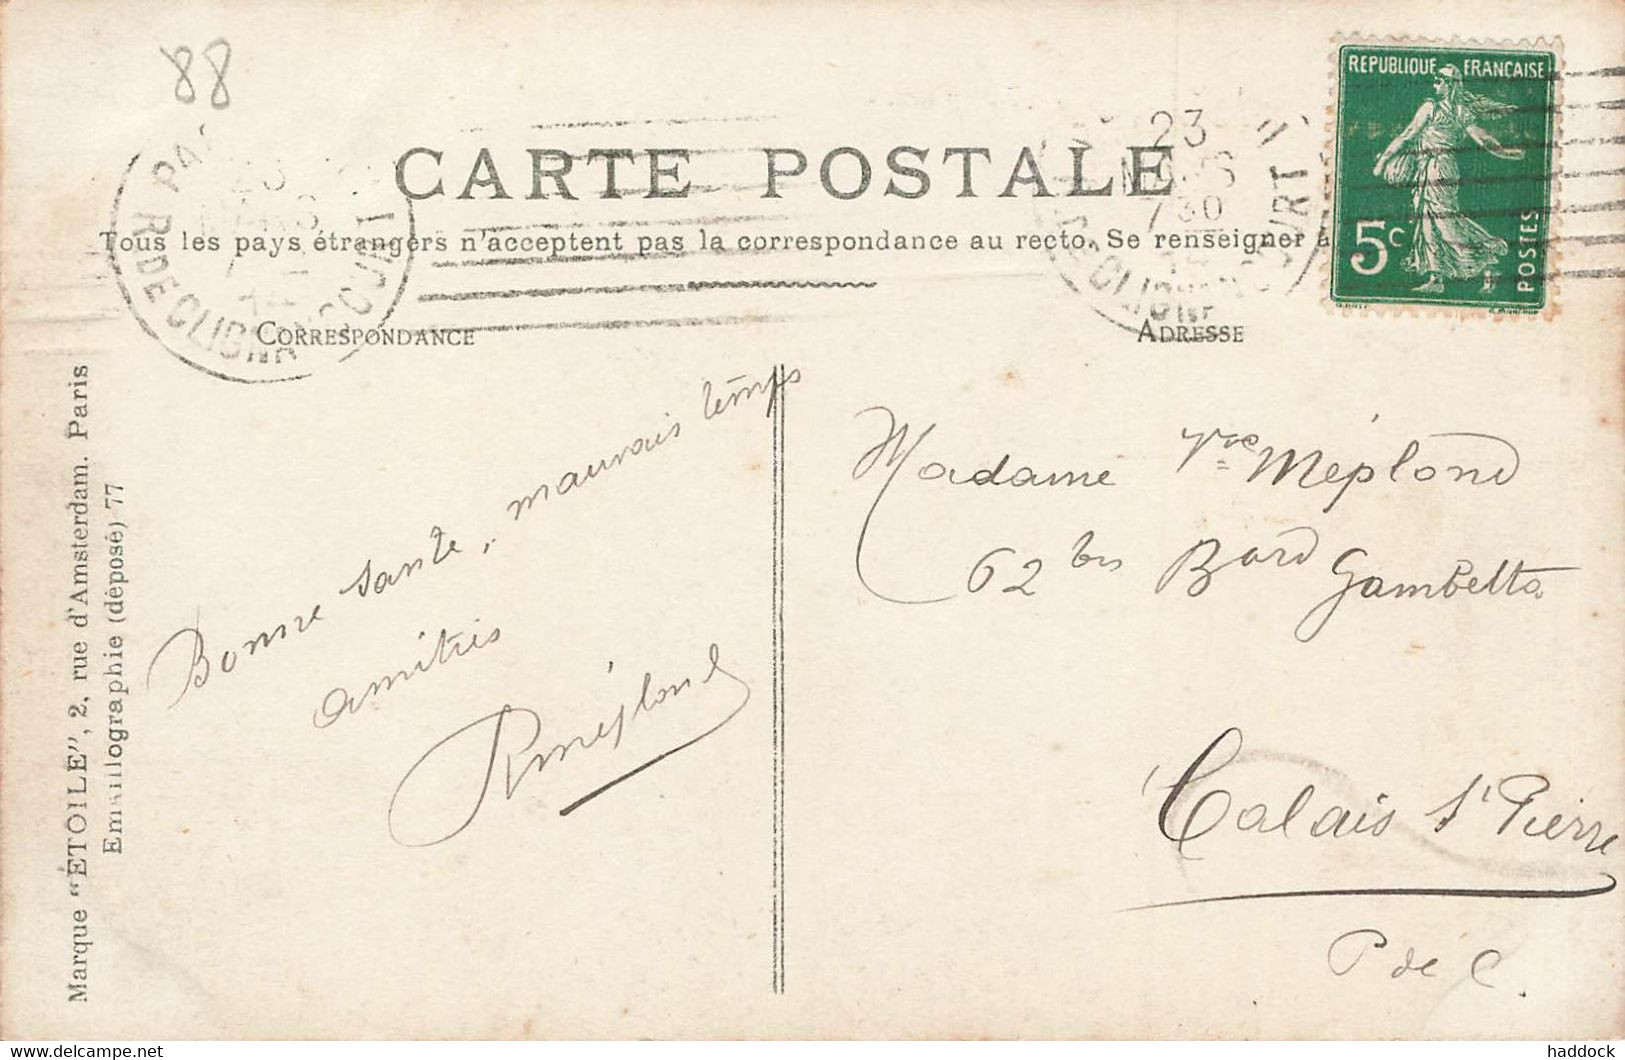 88
REPUBLIQUE FRANÇAISE
5c
POSTES
CARTE POSTALE
23
30
R. DE CLIGNANCOURT
Tous les pays étrangers n'acceptent pas la correspondance au recto. Se renseigner à
CORRESPONDANCE
ADRESSE
Bonne santé, mauvais temps
amitiés
Méplond
Madame Vve Méplond
62 bis Bard Gambetta
Calais St Pierre
P de C.
Marque "ÉTOILE", 2, rue d'Amsterdam. Paris
Emaillographie (déposé) 77
delcampe.net
haddock